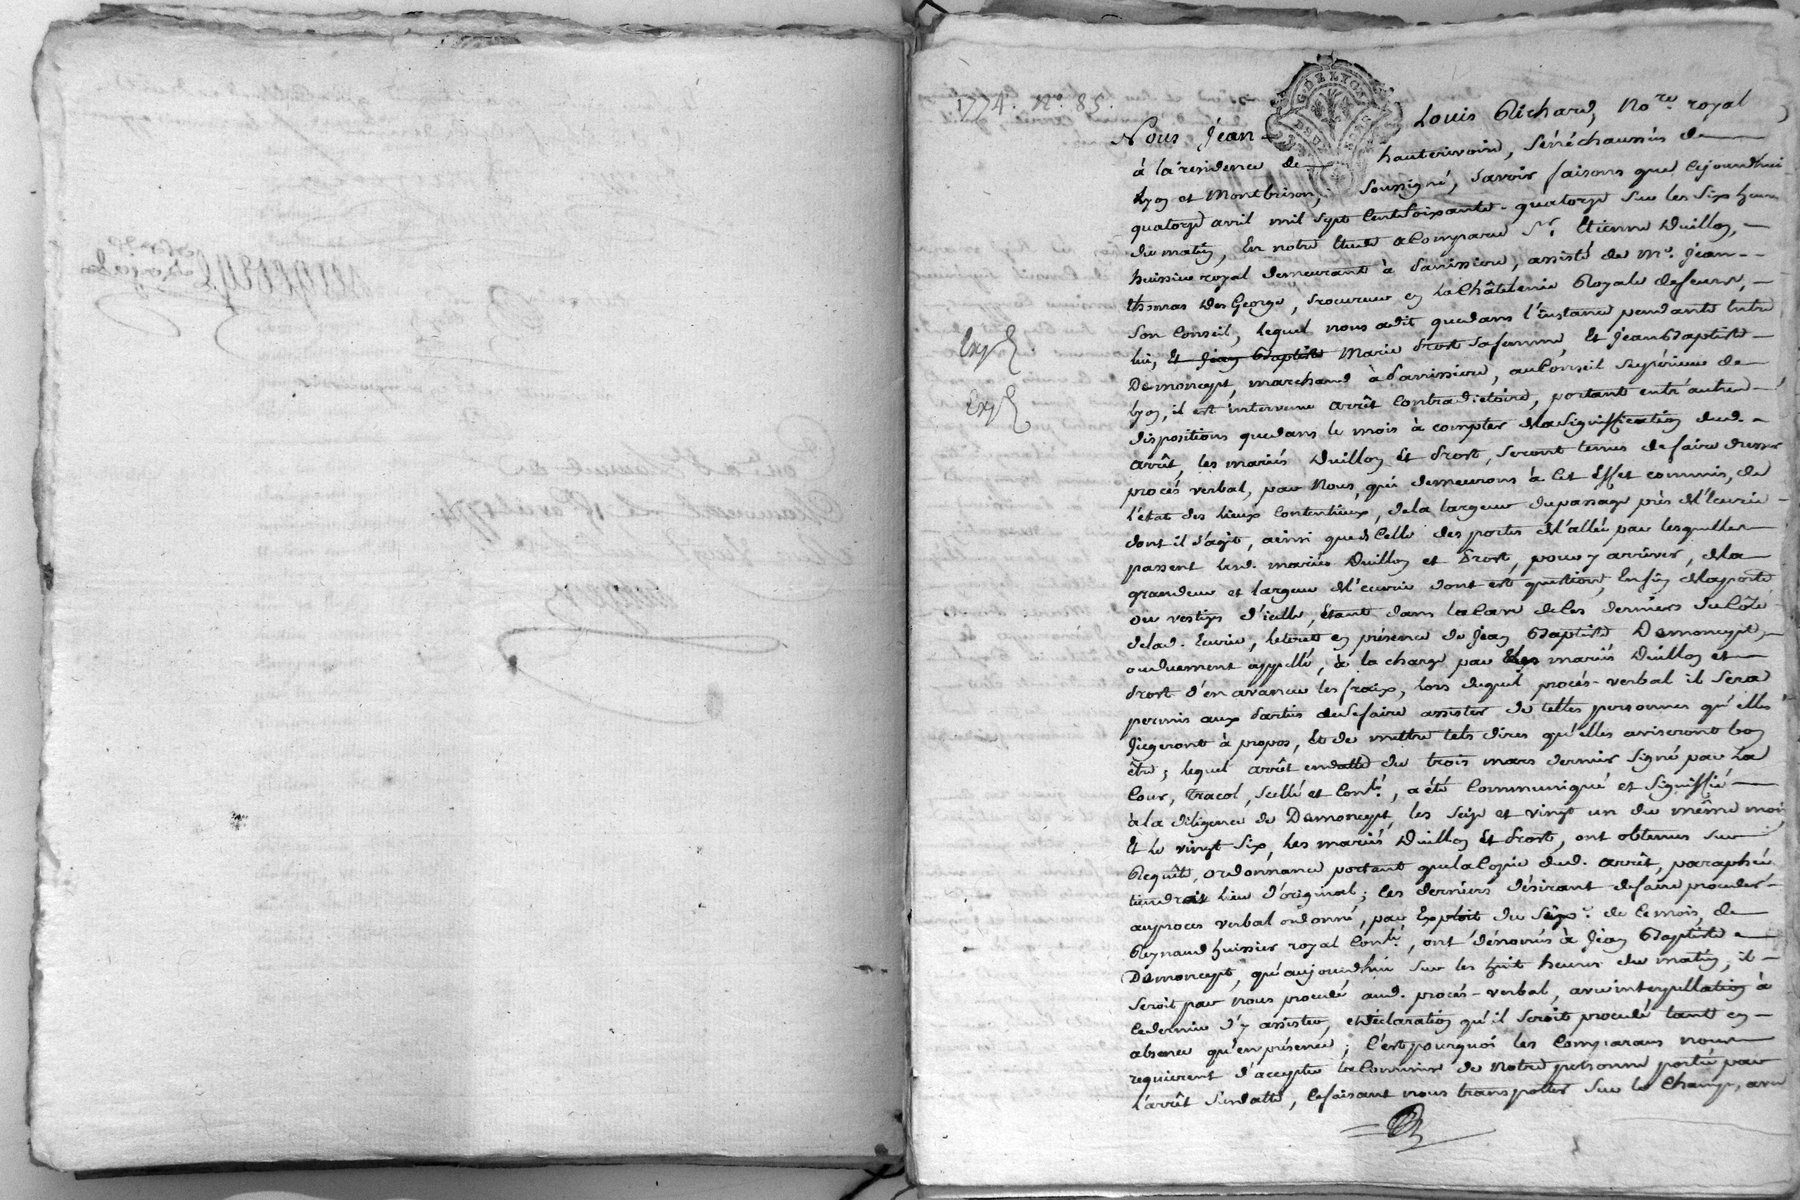 1774. N°. 85.
G. DE LYON
DEUX
Nous Jean Louis Richard, No.re royal
à la residence de hauterivoire, Sénéchaussés de
Lyon et Montbrison, soussigné, savoir faisons que cejourdhui
quatorze avril mil sept cent soixante-quatorze sur les six heures
du matin, En notre Etude a Comparu Sr. Etienne Duillon,
huissier royal demeurant à Panissiere, assisté de Me. Jean-
thomas DesGeorge, procureur en la Châtelenie Royale de feurs,
son Conseil, lequel nous a dit que dans l'instance pendante Entre
lui, Et Jean Baptiste Marie Prost sa femme, Et Jean Baptiste
Demoncept, marchand à Pannissiere, au Conseil Supérieur de
Lyon, il est intervenu arrêt Contradictoire, portant entr'autres
dispositions que dans le mois à compter de la signiffication dud.
arrêt, les mariés Duillon Et Prost, seront tenus de faire dresser
procès verbal, par Nous, qui demeurons à cet Effet commis, de
l'état des lieux Contentieux, de la largeur du passage près de l'Ecurie
dont il s'agit, ainsi que de Celle des portes de l'allée par lesquelles
passent lesd. mariés Duillon et Prost, pour y arriver, de la
grandeur et largeur de l'Ecurie dont est question, Enfin de la porte
ou vestiges d'icelle, étant dans la Cave de ces derniers du Côté
de lad. Ecurie, le tout en présence de Jean Baptiste Demoncept,
ou duement appellé, à la charge par les mariés Duillon et
Prost d'en avancer les fraix, lors duquel procès-verbal il sera
permis aux Parties de se faire assister de telles personnes qu'elles
jugeront à propos, Et de mettre tels dires qu'elles aviseront bon
être; lequel arrêt en datte du trois mars dernier signé par La
Cour, Tracol, scellé et Conlé., a été Communiqué et signiffié
à la diligence de Demoncept, les seize et vingt un du même mois,
Et le vingt six, les mariés Duillon Et Prost, ont obtenus sur
Requête, ordonnance portant que la Copie dud. arrêt, paraphée
tiendrait lieu d'original; ces derniers désirant de faire proceder
au proces verbal ordonné, par Exploit du de ce mois, de
Reynaud huissier royal Conlé., ont dénoncés à Jean Baptiste
Demoncept, qu'aujourdhui sur les huit heures du matin, il
seroit par nous procedé aud. procès-verbal, avec interpellation à
ce dernier d'y assister, et déclaration qu'il seroit procedé tant en
absence qu'en présence; C'est pourquoi les Comparans nous
requierent d'accepter la Commission de Notre personne portée par
l'arrêt susdatté, ce faisant nous transporter sur le Champ, avec
Exp.é
Exp.é